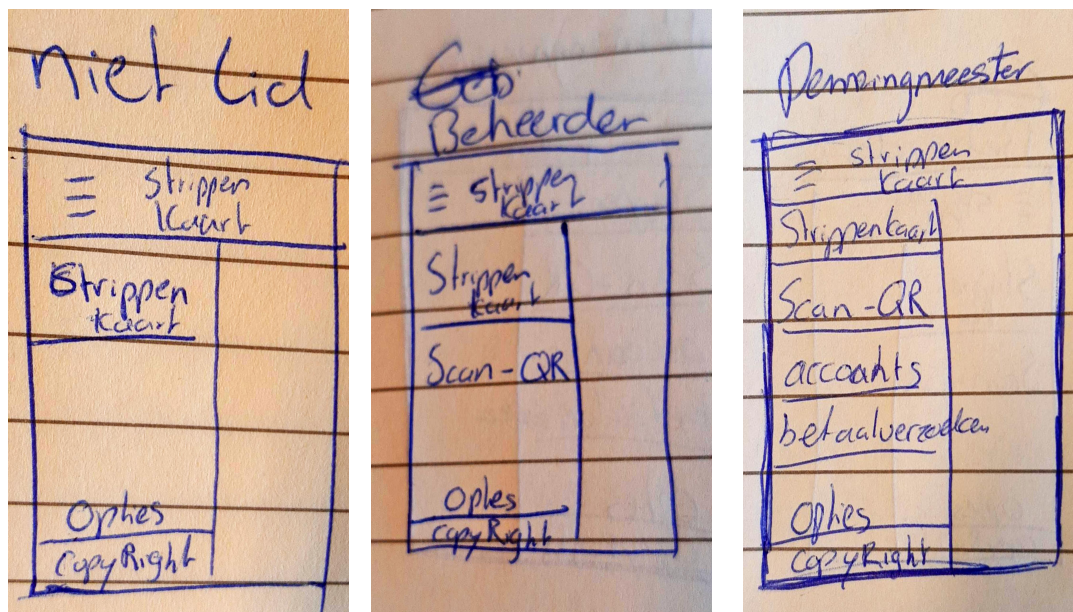 niet lid
Strippen
Kaart
Strippen
Kaart
Opties
CopyRight
Beheerder
Strippen
Kaart
Strippen
Kaart
Scan-QR
Opties
CopyRight
Penningmeester
Strippen
Kaart
Strippenkaart
Scan-QR
accounts
betaalverzoeken
Opties
CopyRight